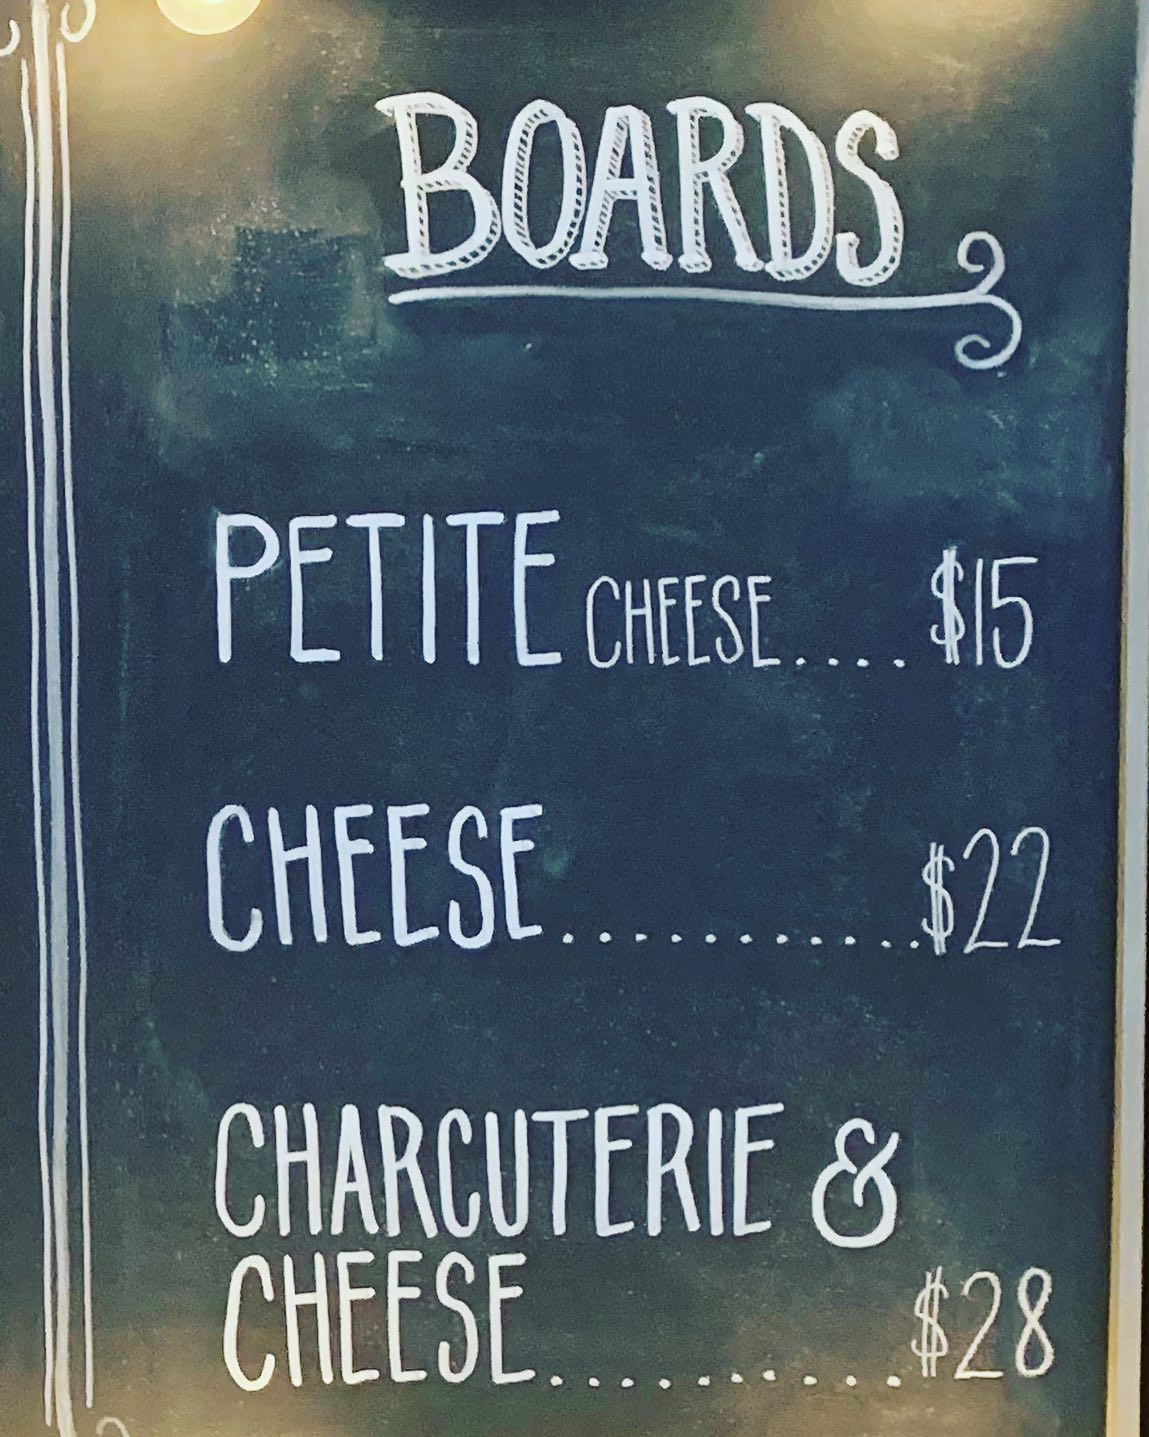 BOARDS
PETITE CHEESE.... $15
CHEESE.............$22
CHARCUTERIE &
CHEESE..........$28